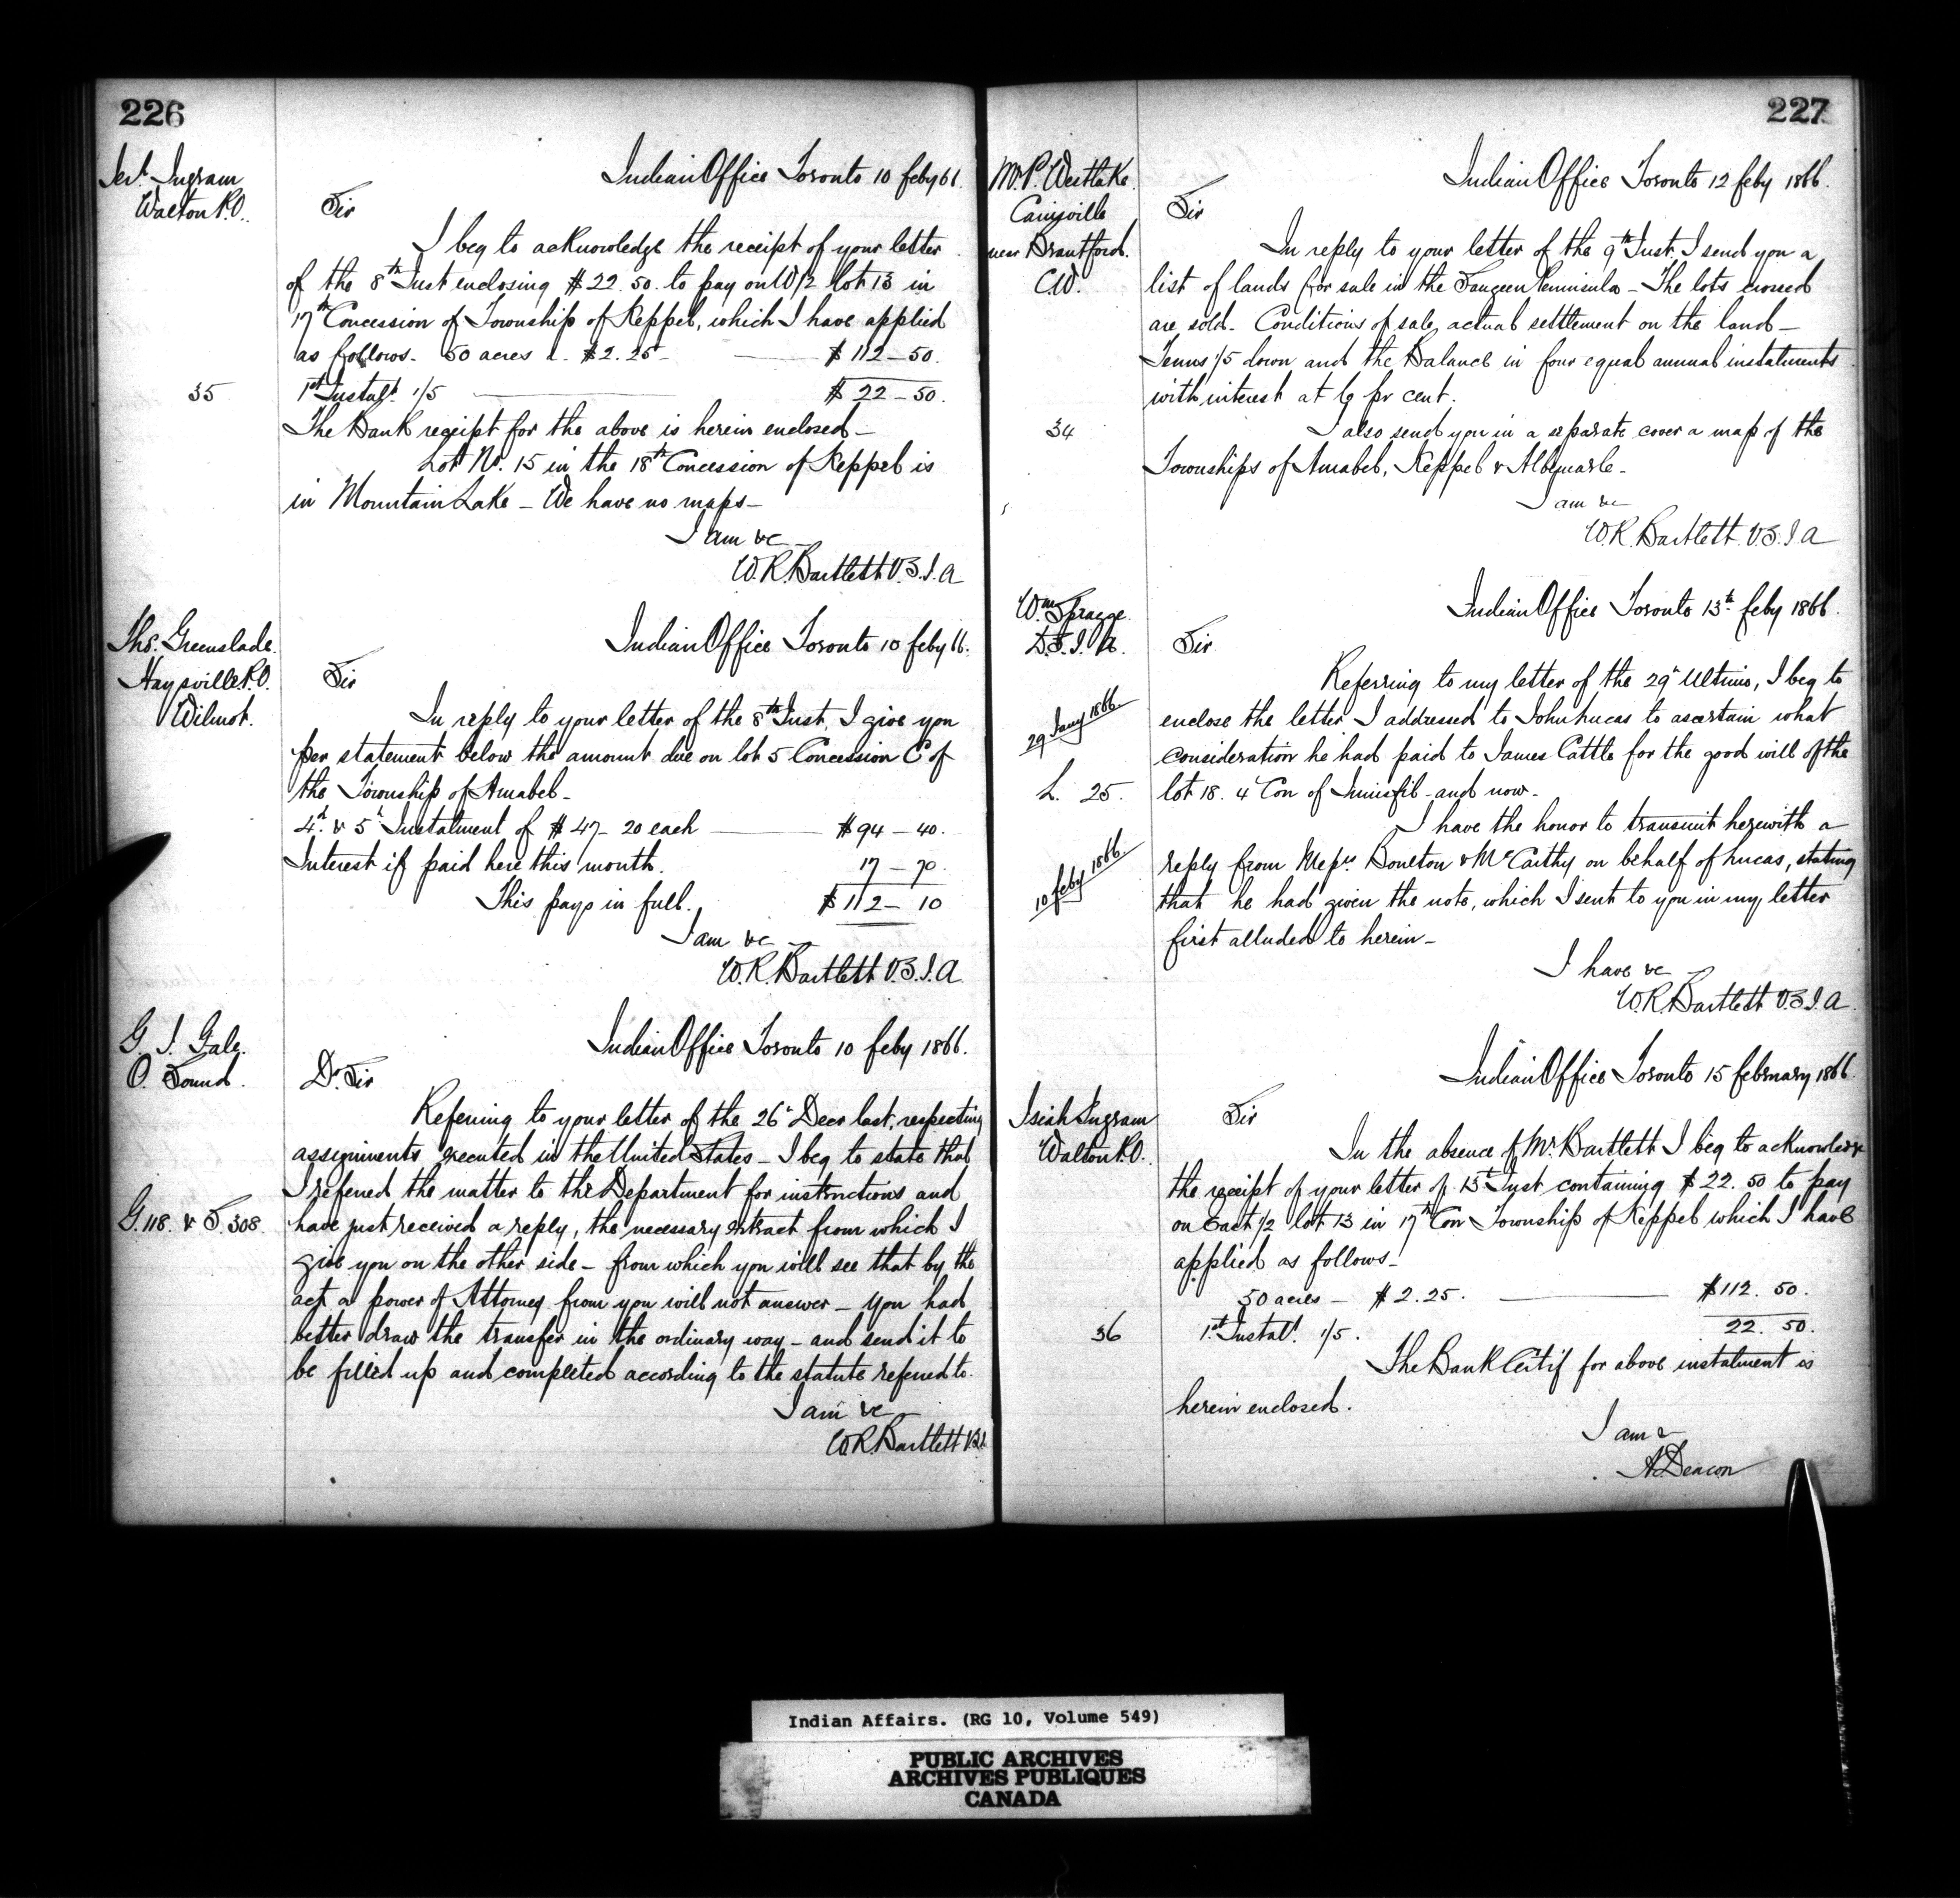 226
Jert. Ingram
Walton P.O.
Indian Office Toronto 10 feby 66.
Sir
I beg to acknowledge the receipt of your letter
of the 8th Inst enclosing $22.50. to pay on W/2 lot 13 in
17th Concession of Township of Keppel, which I have applied
as follows. 50 acres a. $2.25 — $112–50.
35
1st Instalt. 1/5 — $22–50.
The Bank receipt for the above is herein enclosed –
Lot No. 15 in the 18th Concession of Keppel is
in Mountain Lake – We have no maps –
I am &c
W.R. Bartlett V.S.I.A
Ths. Greenslade.
Haysville P.O.
Wilmot.
Indian Office Toronto 10 feby 66.
Sir
In reply to your letter of the 8th Inst, I give you
per statement below the amount due on lot 5 Concession C of
the Township of Amabel –
4th & 5th Instalment of $47–20 each — $94–40.
Interest if paid here this month. 17–70.
This pays in full. $112–10
I am &c
W.R. Bartlett V.S.I.A
G. J. Gale.
O. Sound.
Indian Office Toronto 10 feby 1866.
Dr Sir
Referring to your letter of the 26th Decr last, respecting
assignments executed in the United States – I beg to state that
I referred the matter to the Department for instructions and
G. 118. & S. 308.
have just received a reply, the necessary extract from which I
give you on the other side – from which you will see that by the
act a power of Attorney from you will not answer – you had
better draw the transfer in the ordinary way – and send it to
be filled up and completed according to the statute referred to.
I am &c
W.R. Bartlett
227
Mr. P. Westlake.
Cainsville
near Brantford.
C.W.
Indian Office Toronto 12 feby 1866.
Sir
In reply to your letter of the 9th Inst, I send you a
list of lands for sale in the Saugeen Peninsula – The lots crossed
are sold. Conditions of sale, actual settlement on the land –
Terms 1/5 down and the Balance in four equal annual instalments
with interest at 6 pr cent.
34
I also send you in a separate cover a map of the
Townships of Amabel, Keppel & Albemarle –
I am &c
W.R. Bartlett. V.S.I.A
Wm Spragge.
D.S.I.A.
Indian Office Toronto 13th feby 1866.
Sir
Referring to my letter of the 29th Ultimo, I beg to
29 Jany 1866.
enclose the letter I addressed to John Lucas to ascertain what
consideration he had paid to James Cattle for the good will of the
L. 25.
lot 18. 4 Con of Innisfil – and now –
I have the honor to transmit herewith a
10 feby 1866.
reply from Messrs. Boulton & McCarthy on behalf of Lucas, stating
that he had given the note, which I sent to you in my letter
first alluded to herein –
I have &c
W.R. Bartlett V.S.I.A.
Indian Office Toronto 15 february 1866.
Isiah Ingram
Walton P.O.
Sir
In the absence of Mr. Bartlett I beg to acknowledge
the receipt of your letter of 13th Inst containing $22.50 to pay
on East 1/2 lot 13 in 17th Con Township of Keppel which I have
applied as follows –
50 acres – $2.25. — $112.50.
36
1st Instalt. 1/5. 22.50.
The Bank Certif for above instalment is
herein enclosed.
I am &
A. Deacon
Indian Affairs. (RG 10, Volume 549)
PUBLIC ARCHIVES
ARCHIVES PUBLIQUES
CANADA